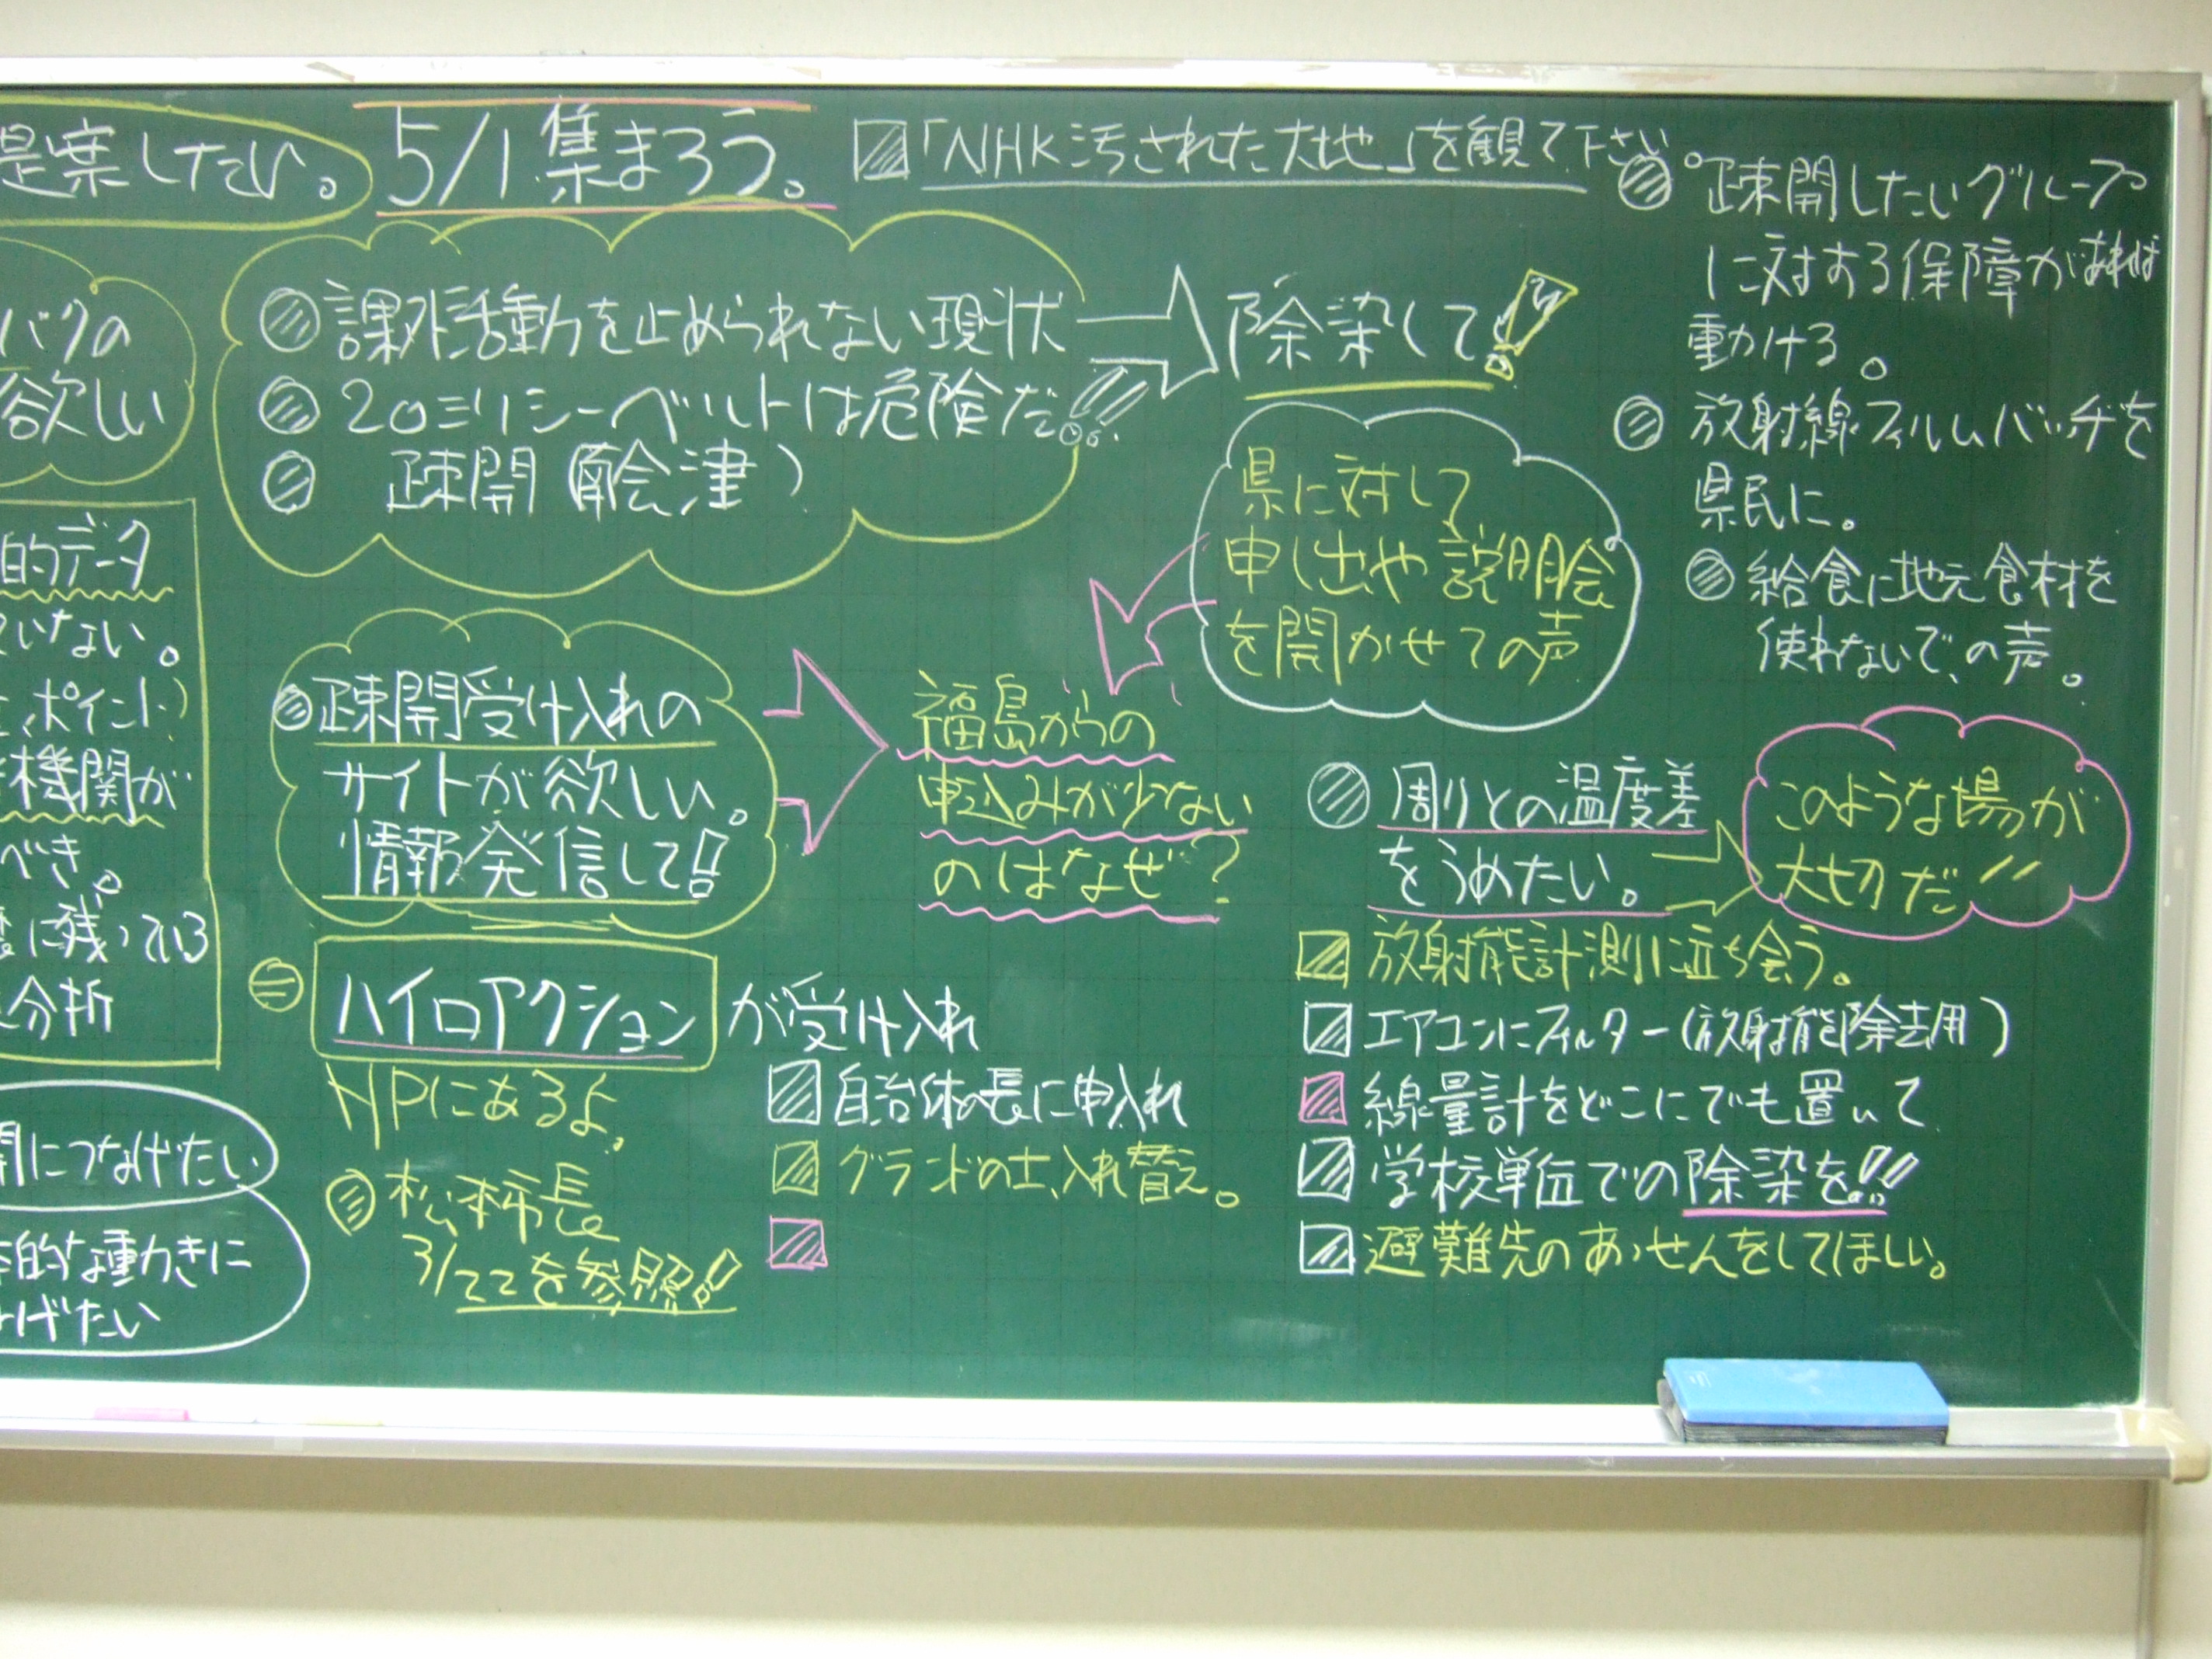 提案したい。
5/1 集まろう。
「NHK 汚された大地」を観て下さい。
バクの
欲しい
的データ
いない。
ポイント)
機関が
べき。
に残っている
分析
につなげたい
的な動きに
げたい
課外活動を止められない現状
20ミリシーベルトは危険だ!!
疎開(南会津)
除染して!
県に対して
申し出や説明会
を開かせての声
疎開したいグループ
に対する保障があれば
動ける。
放射線フィルムバッチを
県民に。
給食に地元食材を
使わないで、の声。
疎開受け入れの
サイトが欲しい。
情報発信して!!
福島からの
申込みが少ない
のはなぜ?
ハイロアクション が受け入れ
HPにあるよ。
松本市長
3/22を参照!!
自治体の長に申入れ
グランドの土、入れ替え。
周りとの温度差
をうめたい。
このような場が
大切だ!!
放射能計測に立ち会う。
エアコンにフィルター(放射能除去用)
線量計をどこにでも置いて
学校単位での除染を!!
避難先のあっせんをしてほしい。